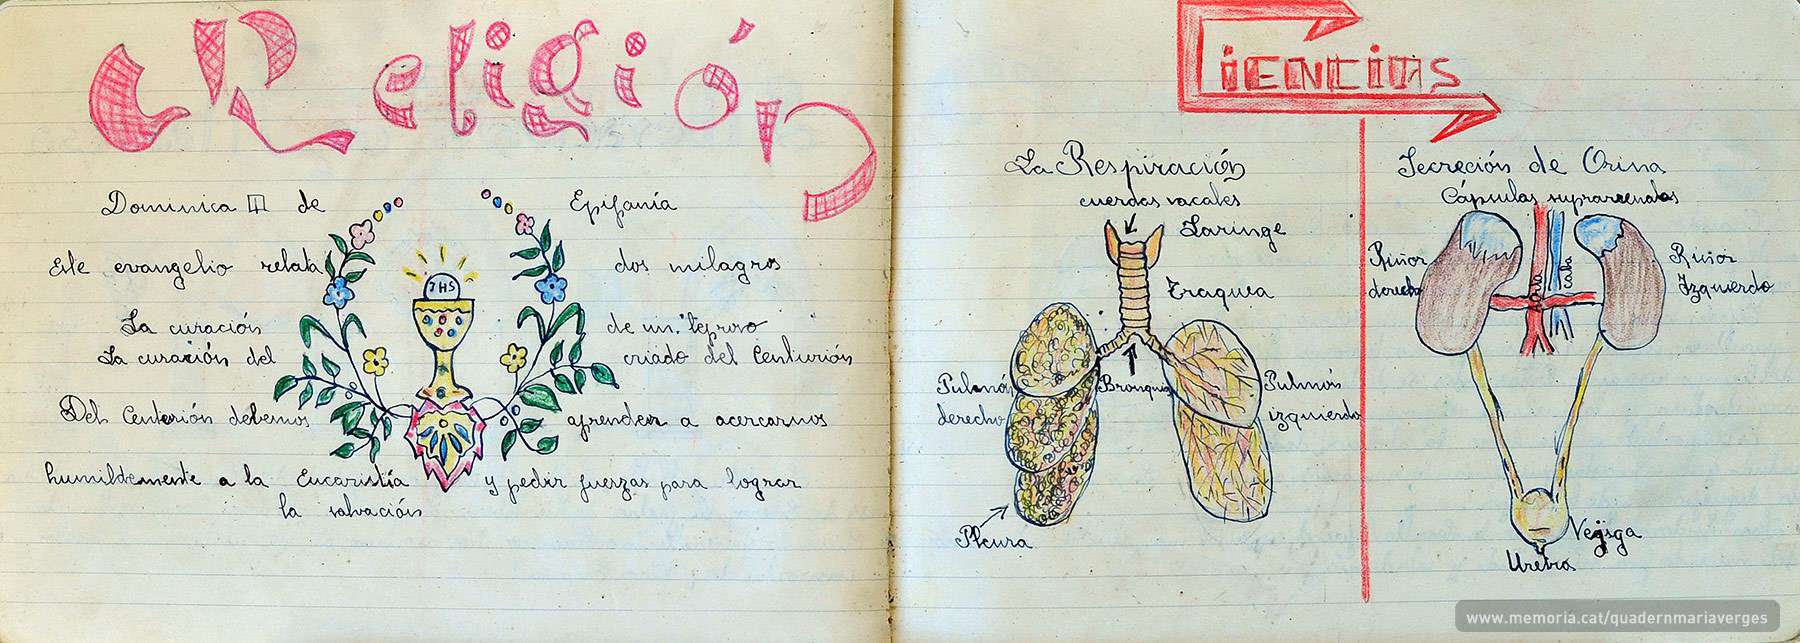 Religión
Dominica III de Epifanía
Este evangelio relata dos milagros
La curación de un leproso
La curación del criado del Centurión
Del Centurión debemos aprender a acercarnos
humildemente a la Eucaristía y pedir fuerzas para lograr
la salvación
JHS
Ciencias
La Respiración
cuerdas vocales
Laringe
Traquea
Pulmón
derecho
Bronquios
Pulmón
izquierdo
Pleura
Secreción de Orina
Cápsulas suprarrenales
Riñon
derecho
Aorta
caba
Riñon
Izquierdo
Vejiga
Uretra
www.memoria.cat/quadernmariaverges